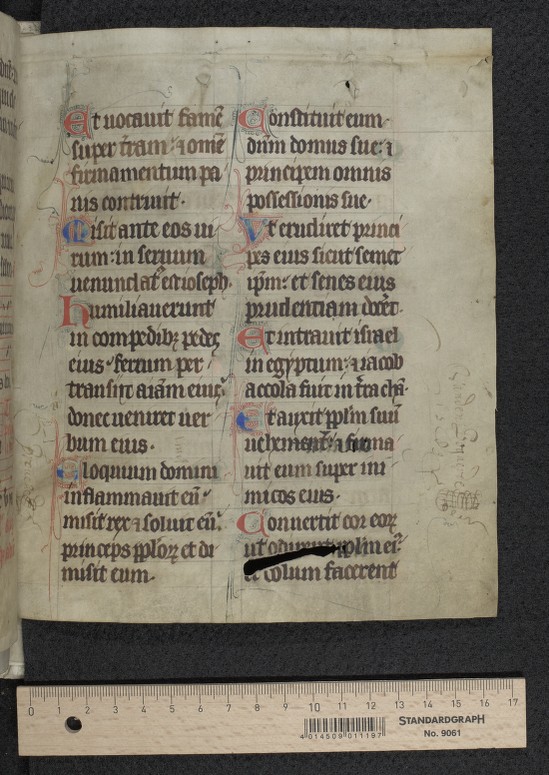 Et uocauit famē
super tram: ⁊ omē
firmamentum pa
nis contriuit.
Misit ante eos ui
rum: in seruum
uenundatꝰ est ioseph.
Humiliauerunt
in compedibꝫ pedes
eius: ferrum per
transiit aīam eius:
donec ueniret uer
bum eius.
Eloquium domini
inflammauit eū:
misit rex ⁊ soluit eū:
princeps pplōꝝ et di
misit eum.
Constituit eum
dūm domus sue: ⁊
principem omnis
possessionis sue.
Vt erudiret princi
pes eius sicut semet
ip̄m: et senes eius
prudentiam docēt.
Et intrauit israel
in egyptum: ⁊ iacob
accola fuit in t̄ra chā.
Et auxit pplm suū
uehementer: ⁊ firma
uit eum super ini
micos eius.
Conuertit cor eoꝝ
ut odirent pplm eiꝰ:
et dolum facerent
0 1 2 3 4 5 6 7 8 9 10 11 12 13 14 15 16 17
4 014509 011197
STANDARDGRAPH
No. 9061